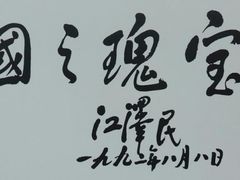 國之瑰宝
江澤民
一九九二年八月八日